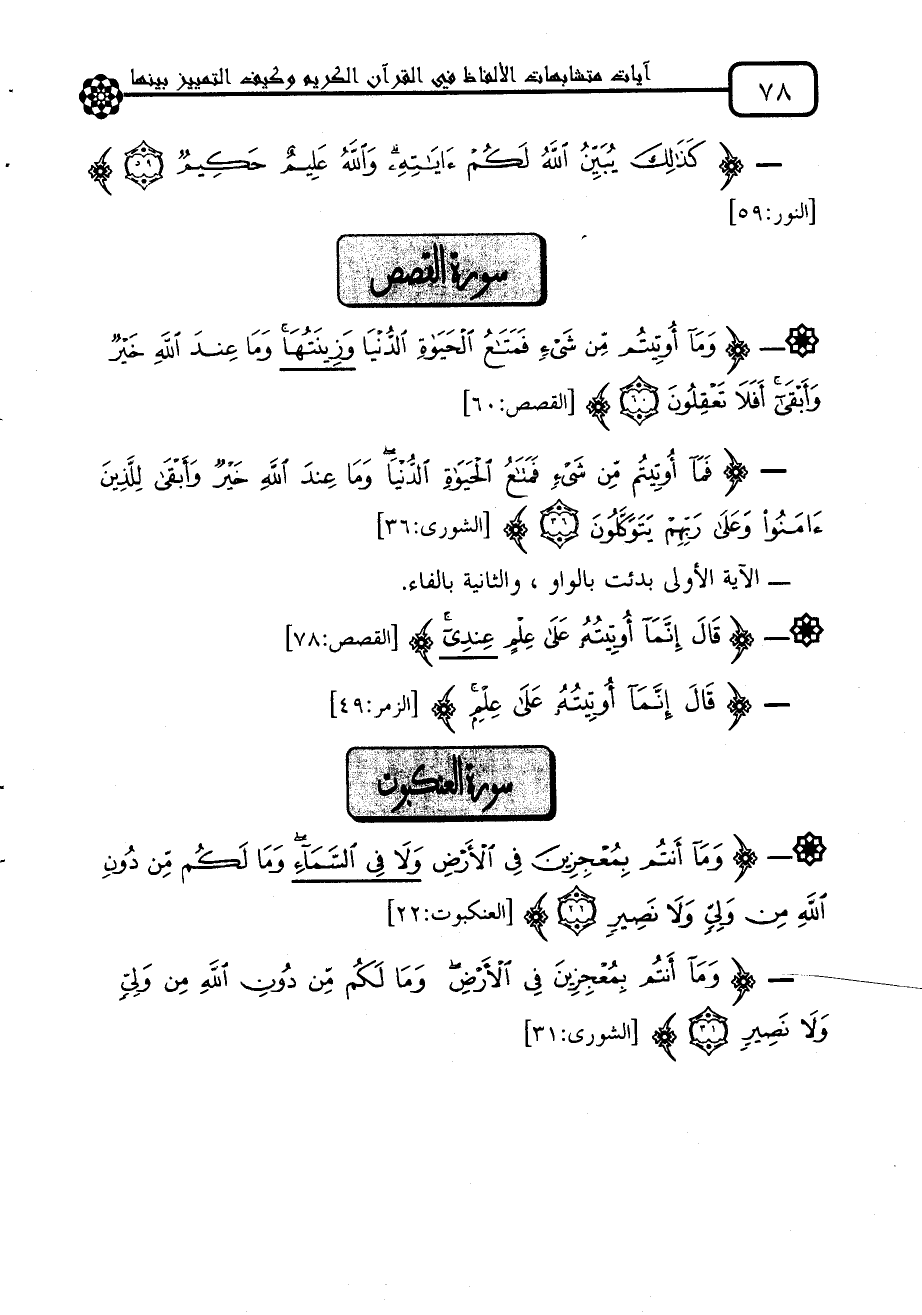 آيات متشابهات الألفاظ في القرآن الكريم وكيف التمييز بينها
٧٨
— ﴿ كَذَٰلِكَ يُبَيِّنُ ٱللَّهُ لَكُمْ ءَايَٰتِهِۦ ۗ وَٱللَّهُ عَلِيمٌ حَكِيمٌ ٥٩ ﴾
[النور:٥٩]
سورة القصص
— ﴿ وَمَآ أُوتِيتُم مِّن شَىْءٍ فَمَتَٰعُ ٱلْحَيَوٰةِ ٱلدُّنْيَا وَزِينَتُهَا ۚ وَمَا عِندَ ٱللَّهِ خَيْرٌ
وَأَبْقَىٰٓ ۚ أَفَلَا تَعْقِلُونَ ٦٠ ﴾ [القصص:٦٠]
— ﴿ فَمَآ أُوتِيتُم مِّن شَىْءٍ فَمَتَٰعُ ٱلْحَيَوٰةِ ٱلدُّنْيَا ۖ وَمَا عِندَ ٱللَّهِ خَيْرٌ وَأَبْقَىٰ لِلَّذِينَ
ءَامَنُوا۟ وَعَلَىٰ رَبِّهِمْ يَتَوَكَّلُونَ ٣٦ ﴾ [الشورى:٣٦]
— الآية الأولى بدئت بالواو ، والثانية بالفاء.
— ﴿ قَالَ إِنَّمَآ أُوتِيتُهُۥ عَلَىٰ عِلْمٍ عِندِىٓ ۚ ﴾ [القصص:٧٨]
— ﴿ قَالَ إِنَّمَآ أُوتِيتُهُۥ عَلَىٰ عِلْمٍۭ ۚ ﴾ [الزمر:٤٩]
سورة العنكبوت
— ﴿ وَمَآ أَنتُم بِمُعْجِزِينَ فِى ٱلْأَرْضِ وَلَا فِى ٱلسَّمَآءِ ۖ وَمَا لَكُم مِّن دُونِ
ٱللَّهِ مِن وَلِىٍّ وَلَا نَصِيرٍ ٢٢ ﴾ [العنكبوت:٢٢]
— ﴿ وَمَآ أَنتُم بِمُعْجِزِينَ فِى ٱلْأَرْضِ ۖ وَمَا لَكُم مِّن دُونِ ٱللَّهِ مِن وَلِىٍّ
وَلَا نَصِيرٍ ٣١ ﴾ [الشورى:٣١]